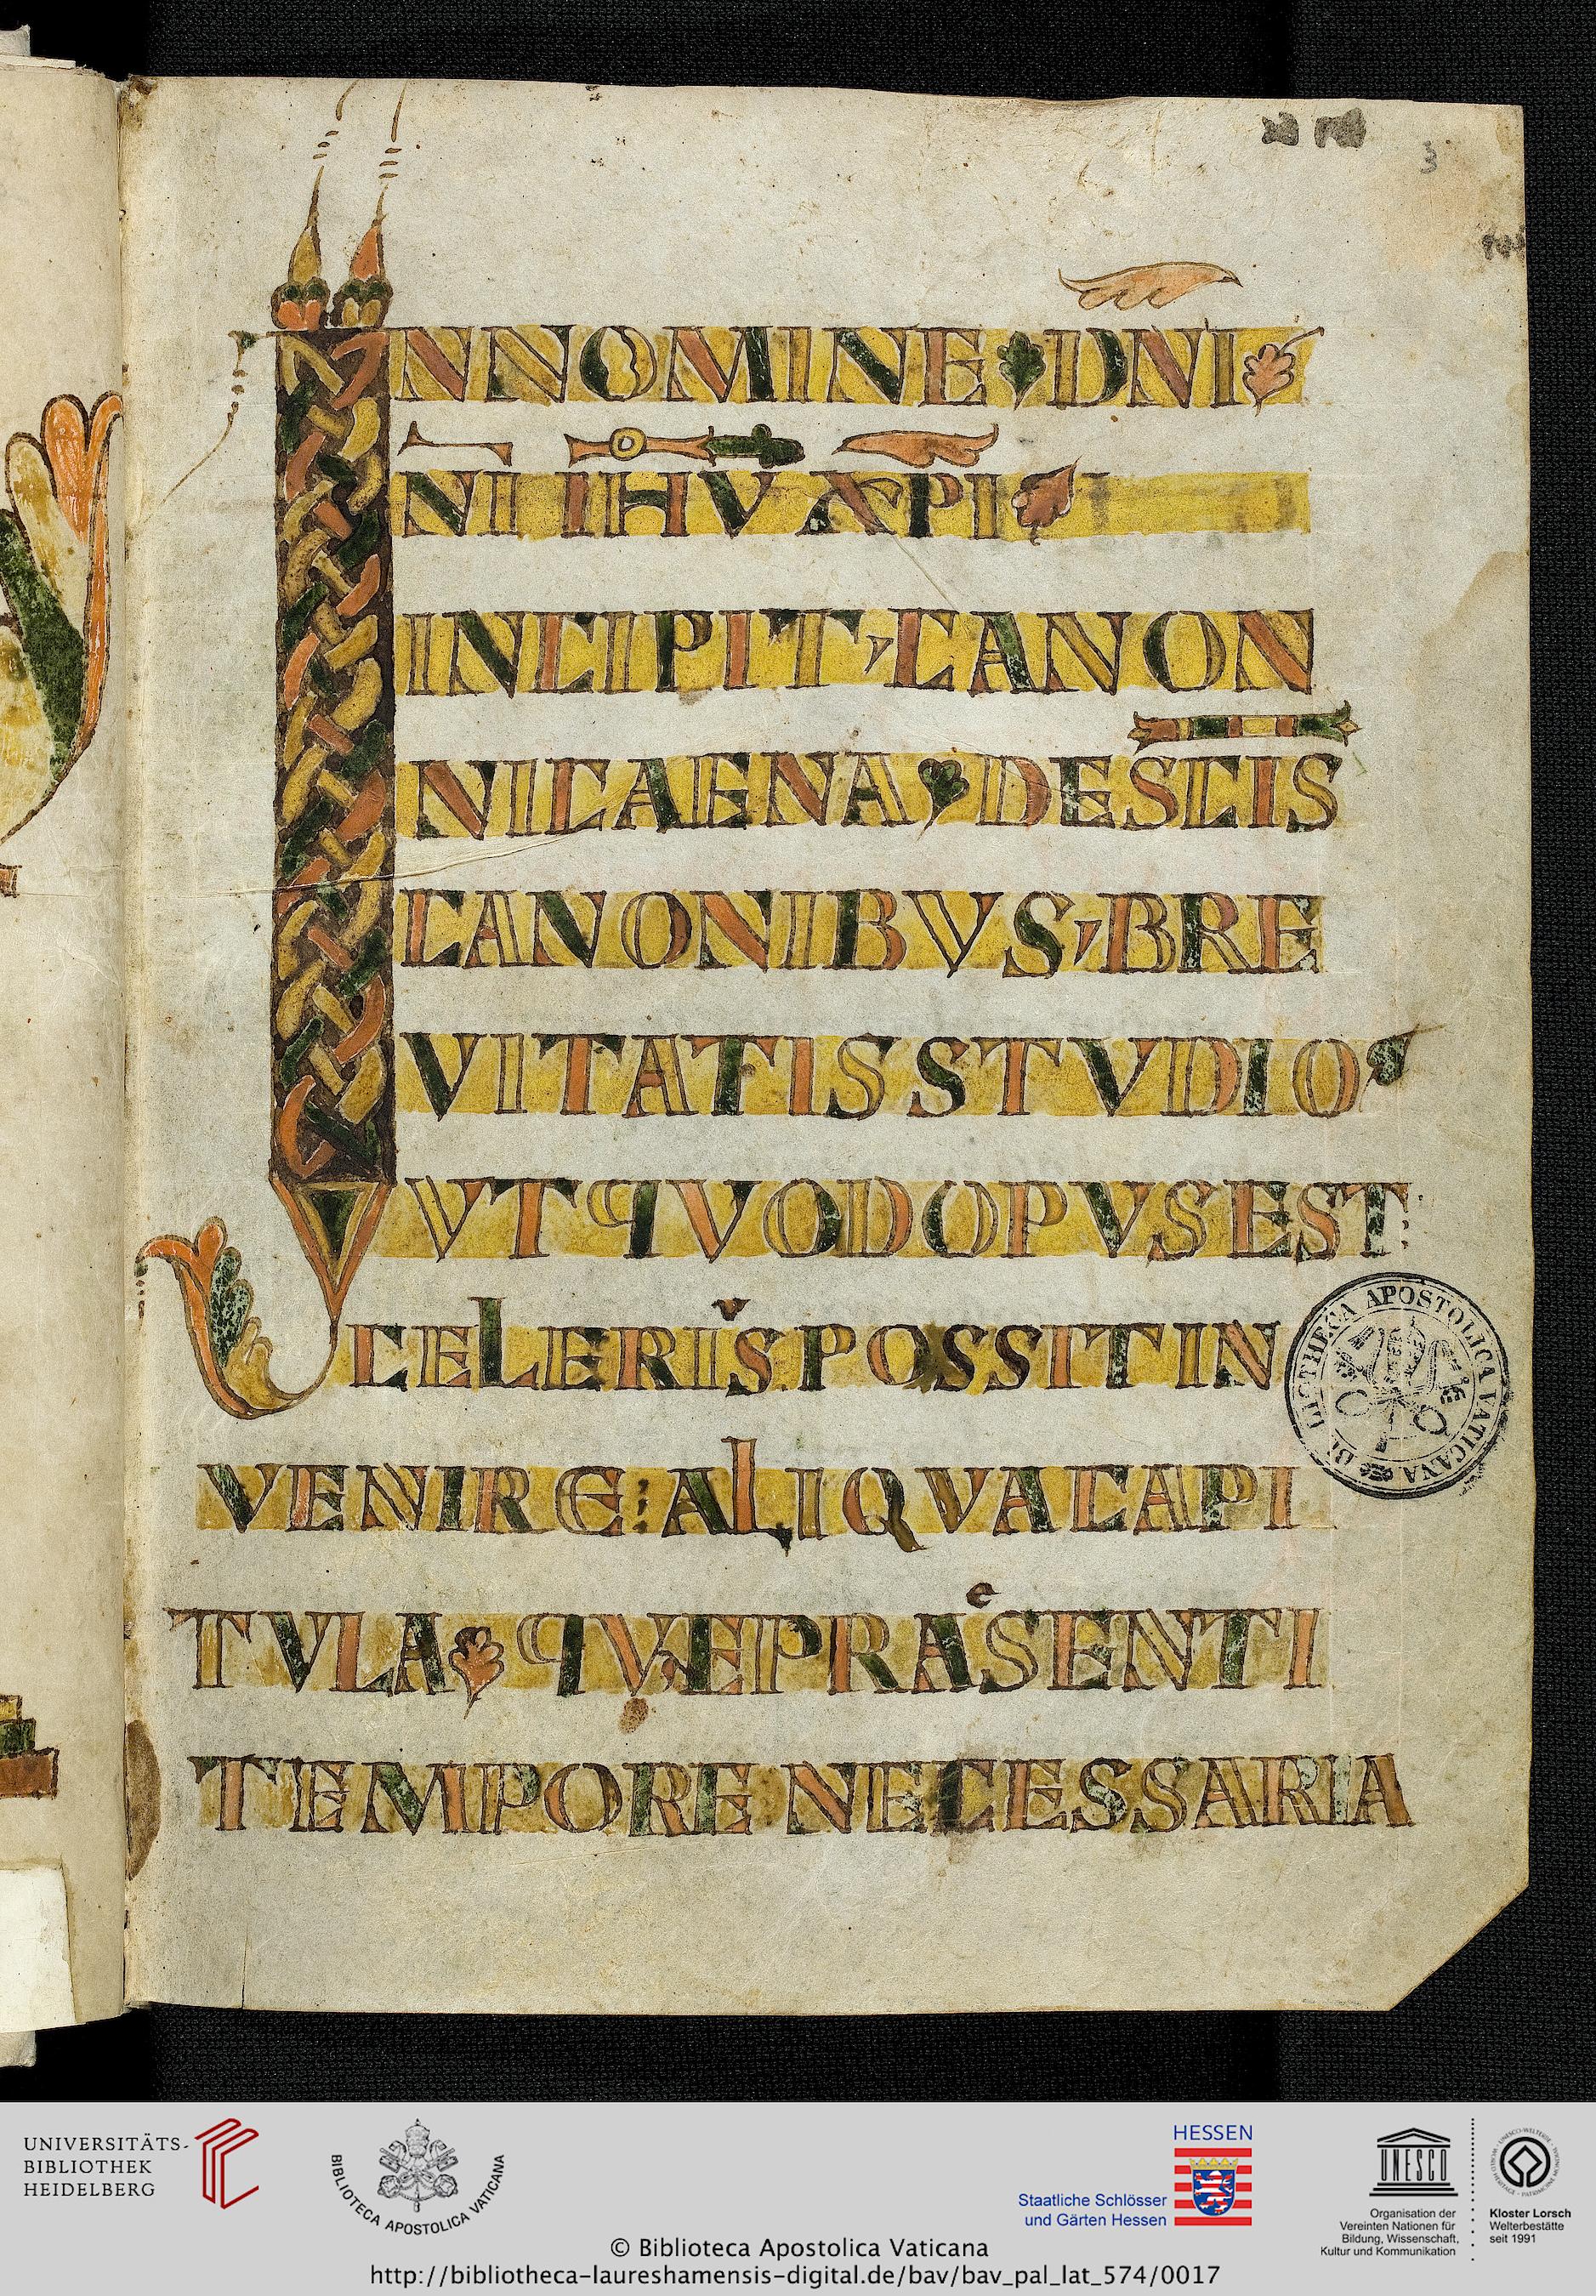 3
INNOMINE DNI
NI IHV XPI
INCIPIT, CANON
NICAENA DE SCIS
CANONIBVS, BRE
VITATIS STVDIO
VT QVOD OPVS EST:
CELERIS POSSIT IN
VENIRE: ALIQVA CAPI
TVLA QVE PRAESENTI
TEMPORE NECESSARIA
BIBLIOTHECA APOSTOLICA VATICANA
UNIVERSITÄTS-
BIBLIOTHEK
HEIDELBERG
BIBLIOTECA APOSTOLICA VATICANA
HESSEN
Staatliche Schlösser
und Gärten Hessen
UNESCO
Organisation der
Vereinten Nationen für
Bildung, Wissenschaft,
Kultur und Kommunikation
Kloster Lorsch
Welterbestätte
seit 1991
© Biblioteca Apostolica Vaticana
http://bibliotheca-laureshamensis-digital.de/bav/bav_pal_lat_574/0017